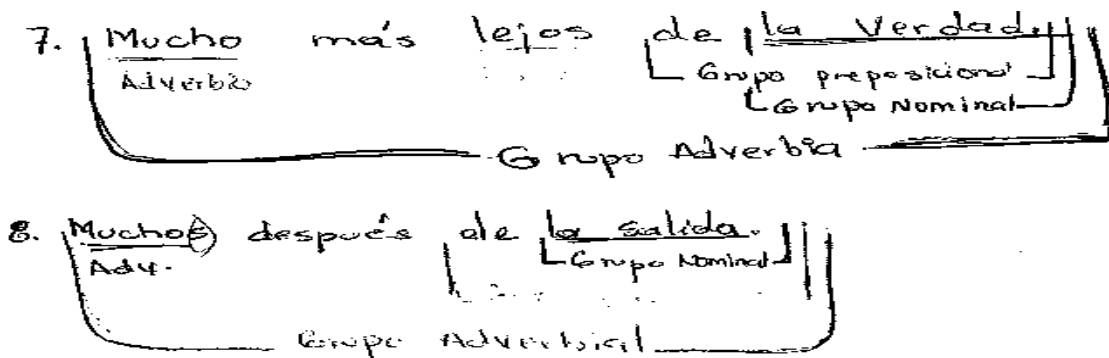 7. Mucho más lejos de la Verdad.
Adverbio Grupo preposicional
Grupo Nominal
Grupo Adverbia
8. Muchos después de la salida.
Adv. Grupo Nominal
Grupo Adverbial